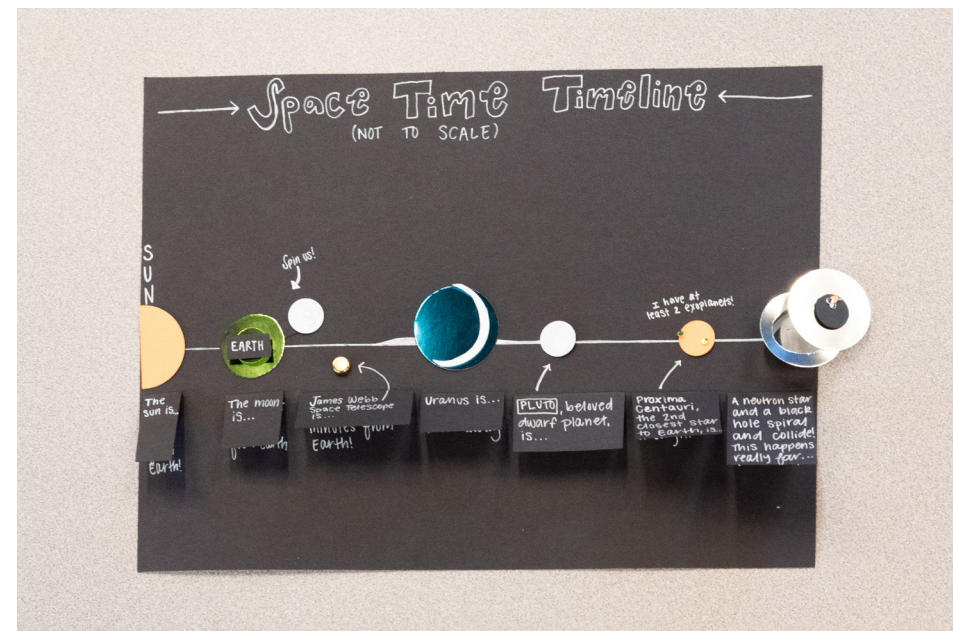 Space Time Timeline
(NOT TO SCALE)
SUN
Spin us!
EARTH
I have at
least 2 exoplanets!
The
sun is...
Earth!
The moon
is...
James Webb
Space Telescope
is...
minutes from
Earth!
Uranus is...
PLUTO, beloved
dwarf planet,
is...
Proxima
Centauri,
the 2nd
closest star
to Earth, is...
A neutron star
and a black
hole spiral
and collide!
This happens
really far...